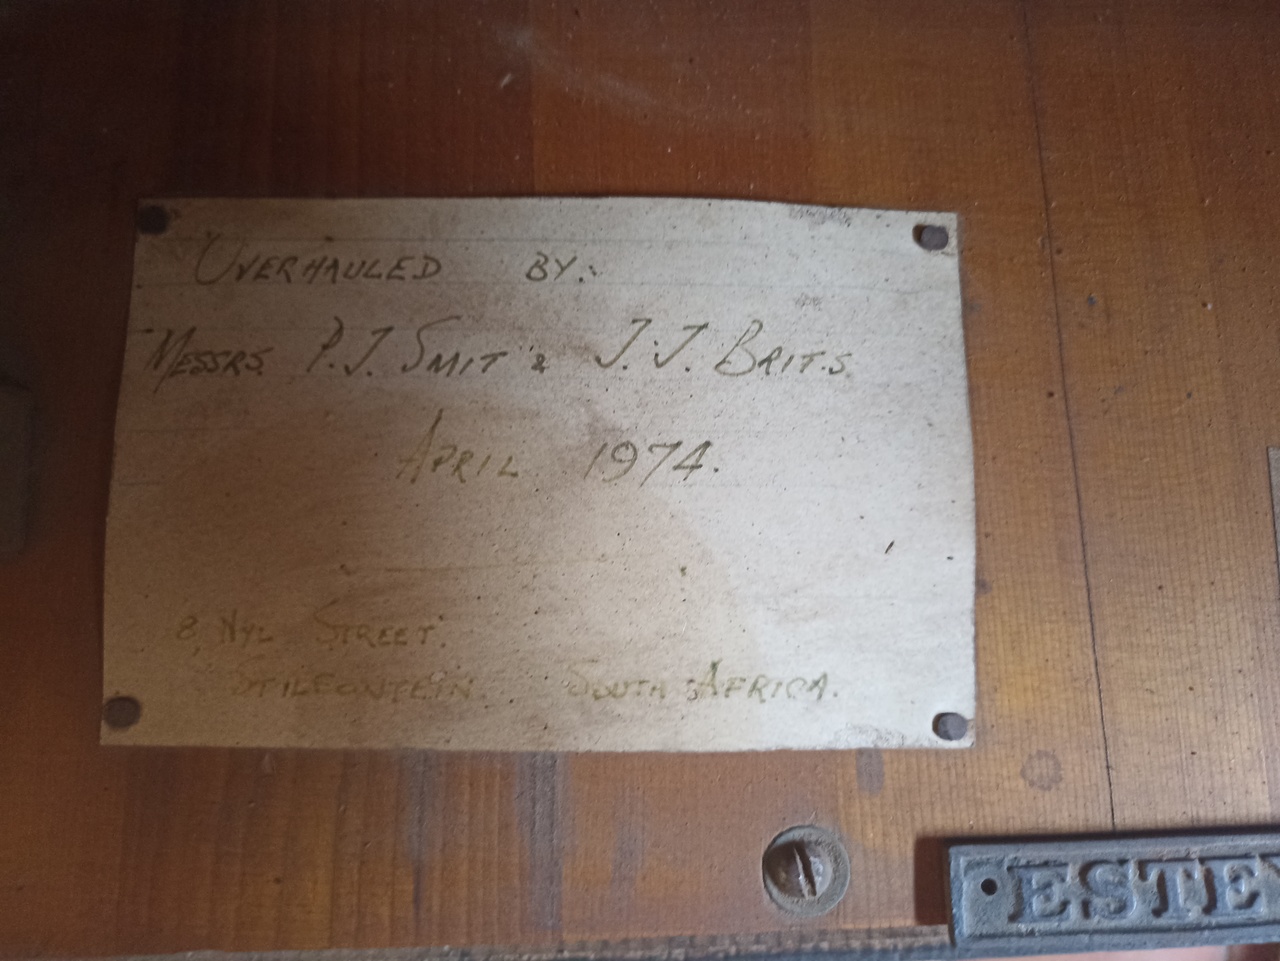 OVERHAULED BY:
MESSRS. P.J. SMIT & J.J. BRITS.
APRIL 1974.
8, NYL STREET.
STILFONTEIN. SOUTH AFRICA.
ESTEY